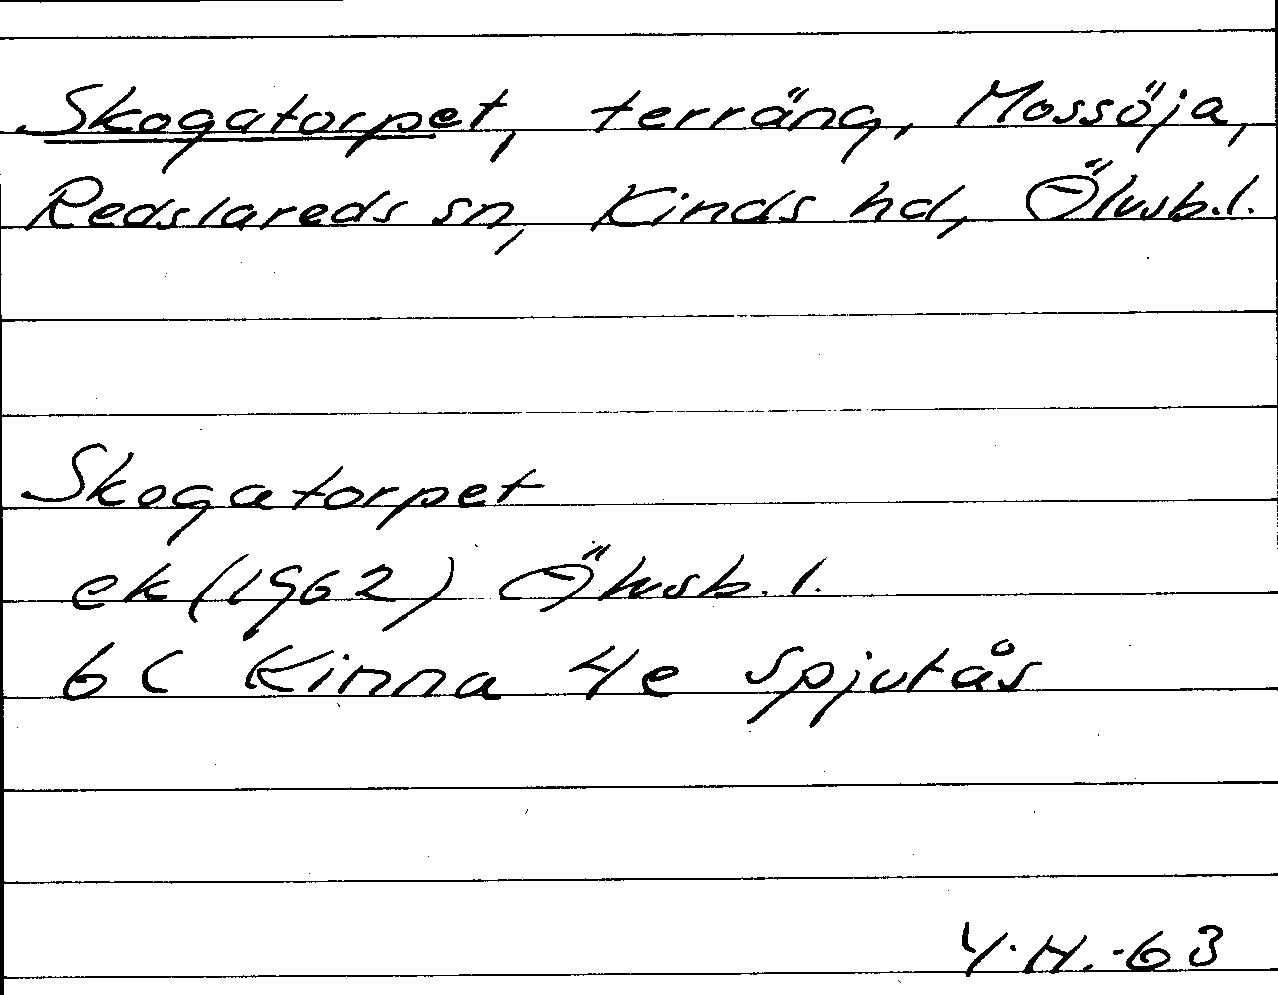 Skogatorpet, terräng, Mossöja,
Redslareds sn, Kinds hd, Ölvsb.l.
Skogatorpet
ek (1962) Ölvsb.l.
6 C Kinna 4e Spjutås
Y.H.-63